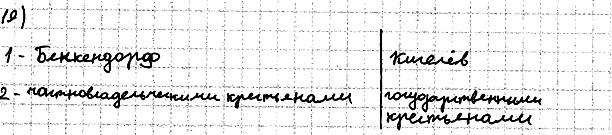 19)
1 - Бенккендорф Киселёв
2 - частновладельческими крестьянами государственными
крестьянами